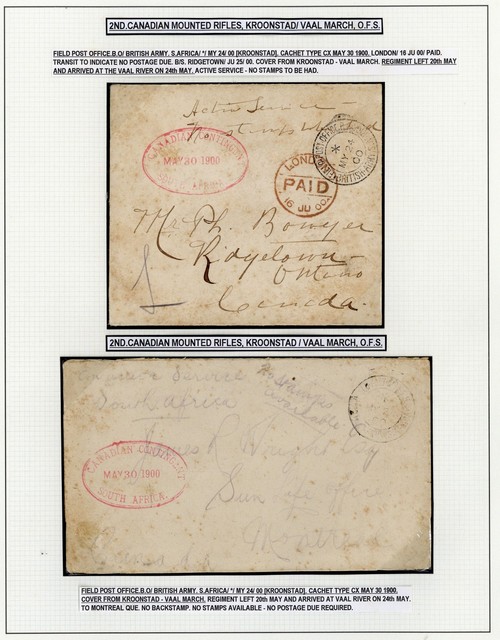 2ND.CANADIAN MOUNTED RIFLES, KROONSTAD/ VAAL MARCH, O.F.S.
FIELD POST OFFICE.B.O/ BRITISH ARMY. S.AFRICA/ */ MY 24/ 00 [KROONSTAD]. CACHET TYPE CX MAY 30 1900, LONDON/ 16 JU 00/ PAID.
TRANSIT TO INDICATE NO POSTAGE DUE. B/S. RIDGETOWN/ JU 25/ 00. COVER FROM KROONSTAD - VAAL MARCH. REGIMENT LEFT 20th MAY
AND ARRIVED AT THE VAAL RIVER ON 24th MAY. ACTIVE SERVICE - NO STAMPS TO BE HAD.
Active Service
CANADIAN CONTINGENT
MAY 30 1900
SOUTH AFRICA
MY 24
00
LONDON
PAID
16 JU 00
Mr. Ph. Bowyer
Ridgetown
Ontario
Canada.
2ND.CANADIAN MOUNTED RIFLES, KROONSTAD / VAAL MARCH, O.F.S.
On active Service
South Africa
No Stamps
available
James R Wright Esq
CANADIAN CONTINGENT
MAY 30 1900
SOUTH AFRICA.
Sun Life office
Montreal
FIELD POST OFFICE.B.O/ BRITISH ARMY, S.AFRICA/ */ MY 24/ 00 [KROONSTAD]. CACHET TYPE CX MAY 30 1900.
COVER FROM KROONSTAD - VAAL MARCH. REGIMENT LEFT 20th MAY AND ARRIVED AT VAAL RIVER ON 24th MAY.
TO MONTREAL QUE. NO BACKSTAMP. NO STAMPS AVAILABLE - NO POSTAGE DUE REQUIRED.